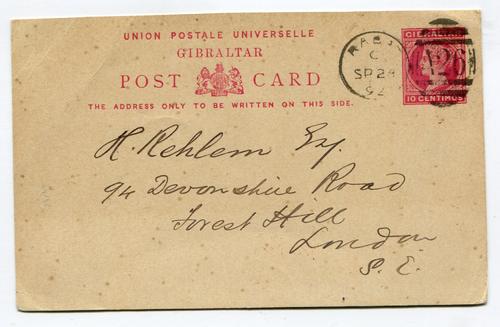 UNION POSTALE UNIVERSELLE
GIBRALTAR
POST CARD
THE ADDRESS ONLY TO BE WRITTEN ON THIS SIDE.
GIBRALTAR
10 CENTIMOS
C
SP 28
92
H. Rehlem Esq.
94 Devonshire Road
Forest Hill
London
S. E.